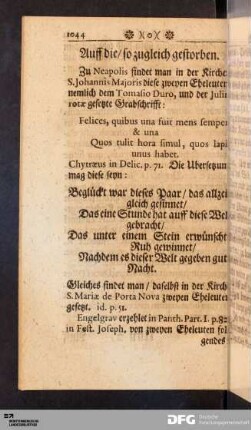 1044 ❀ )o( ❀
Auff die/ so zugleich gestorben.
Zu Neapolis findet man in der Kirche
S. Johannis Majoris diese zweyen Eheleuten
nemlich dem Tomasio Duro, und der Julii
rotæ gesetzte Grabschrifft:
Felices, quibus una fuit mens semper
& una
Quos tulit hora simul, quos lapi
unus habet.
Chytræus in Delic. p. 71. Die Ubersetzun
mag diese seyn:
Beglückt war dieses Paar/ das allzei
gleich gesinnet/
Das eine Stunde hat auff diese Wel
gebracht/
Das unter einem Stein erwünscht
Ruh gewinnet/
Nachdem es dieser Welt gegeben gut
Nacht.
Gleiches findet man/ daselbst in der Kirch
S. Mariæ de Porta Nova zweyen Eheleuten
gesetzt. id. p. 51.
Engelgrav erzehlet in Panth. Part. I. p. 82
in Fest. Joseph. von zweyen Eheleuten fol
gendes
DFG Deutsche
Forschungsgemeinschaft